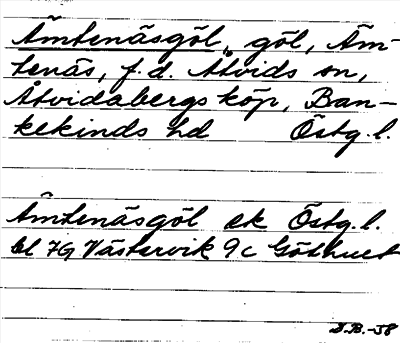 Ämtenäsgöl, göl, Äm-
tenäs, f.d. Åtvids sn,
Åtvidabergs köp, Ban-
kekinds hd Östg. l.
Ämtenäsgöl ek Östg. l.
bl 7G Västervik 9c Göthult
S.B.-58